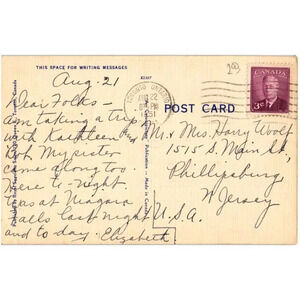 THIS SPACE FOR WRITING MESSAGES
Aug. 21
Dear Folks –
Am taking a trip
with Kathleen and
Bob. My sister
came along too.
Here to-night.
Was at Niagara
Falls last night
and to day. Elizabeth
POST CARD
Mr. & Mrs. Harry Wolf
1515 S. Main St.,
Phillipsburg
N. Jersey
U.S.A.
TORONTO ONTARIO
22
1951
CANADA
3¢